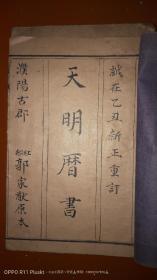 歲在乙丑新正重訂
天明曆書
濮陽古郡
郭家猷原本
OPPO R11 Plus